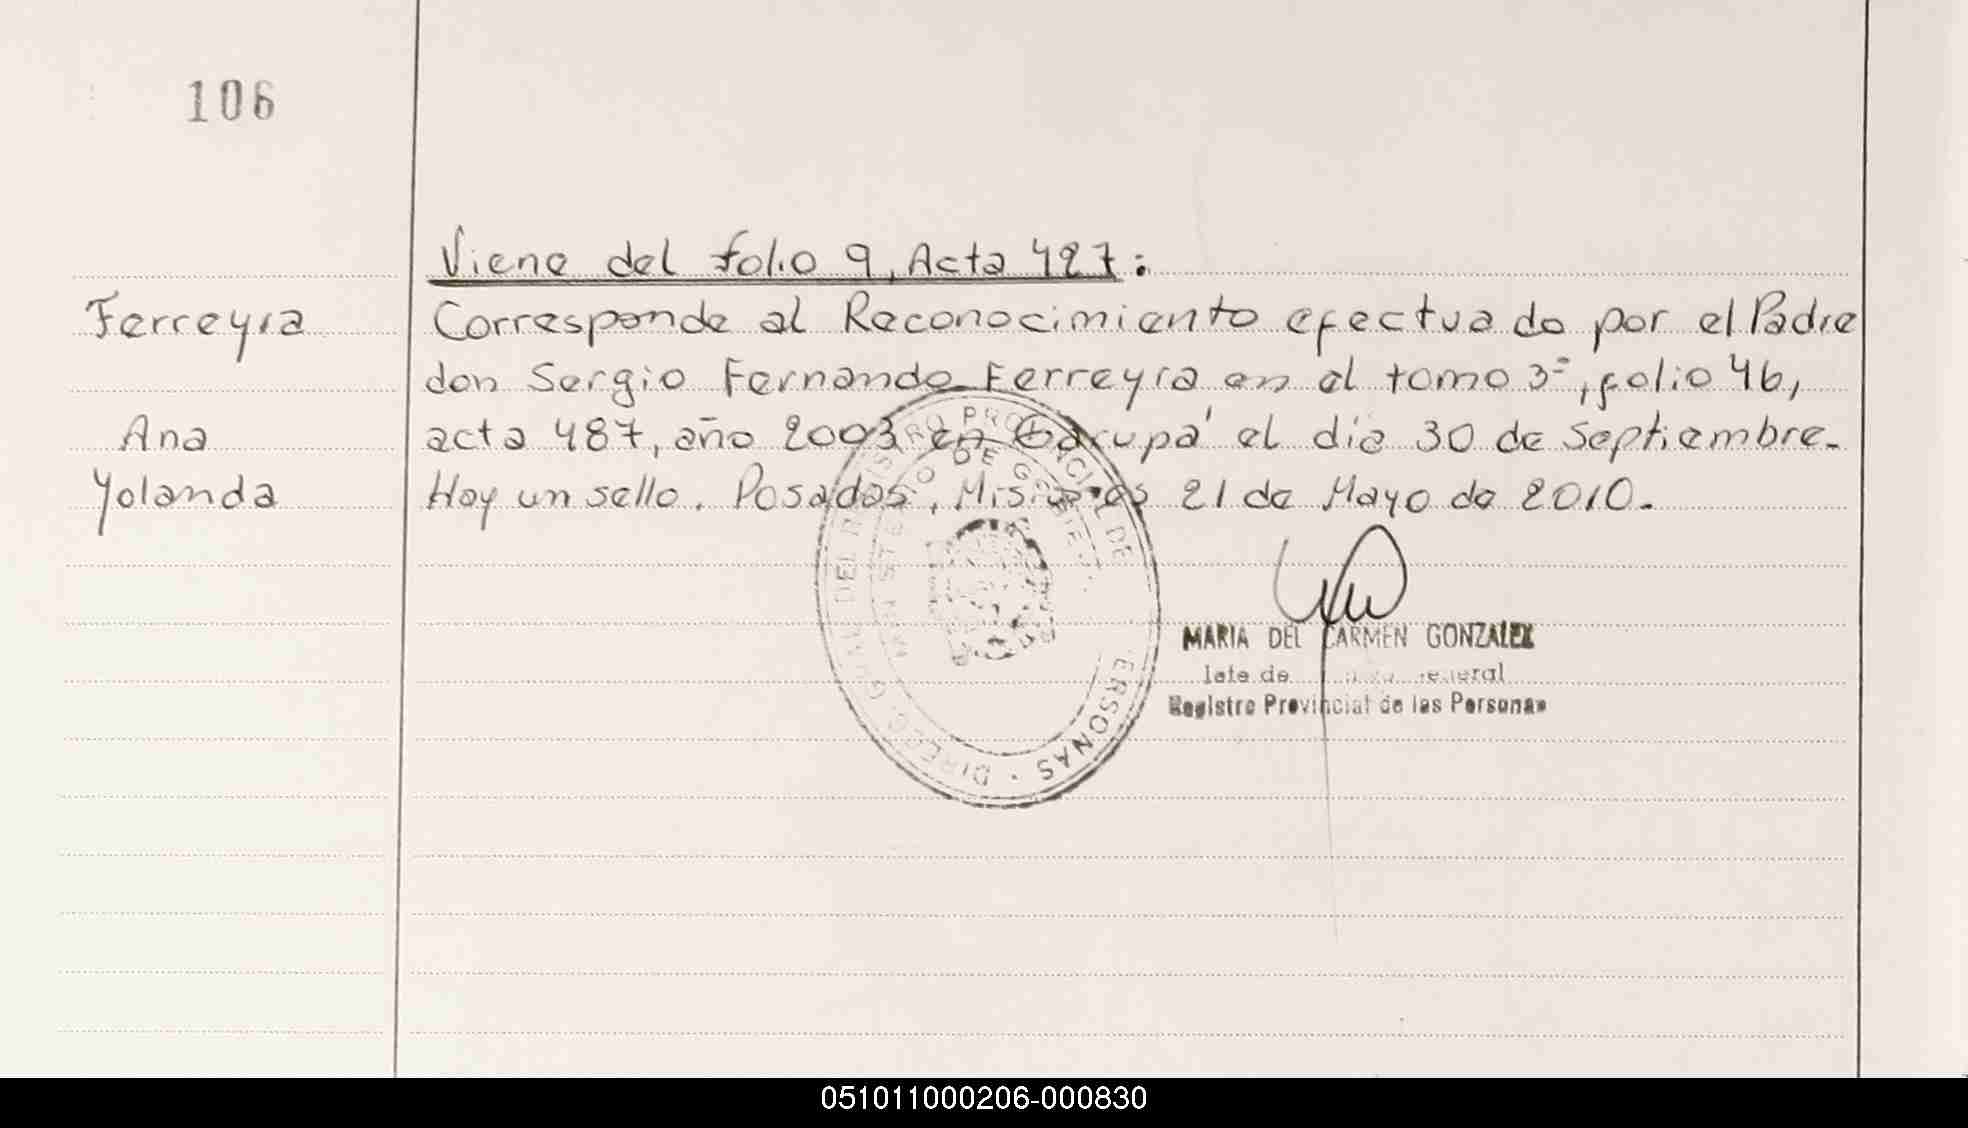 106
Viene del folio 9, Acta 427:
Ferreyra
Corresponde al Reconocimiento efectuado por el Padre
don Sergio Fernando Ferreyra en el tomo 3º, folio 46,
Ana
acta 487, año 2003 en Garupá el día 30 de Septiembre.
Yolanda
Hay un sello. Posadas, Misiones 21 de Mayo de 2010.
DIRECC. GRAL. DEL REGISTRO PROVINCIAL DE PERSONAS
MINISTERIO DE GOBIERNO
MARIA DEL CARMEN GONZALEZ
Jefe de General
Registro Provincial de las Personas
051011000206-000830